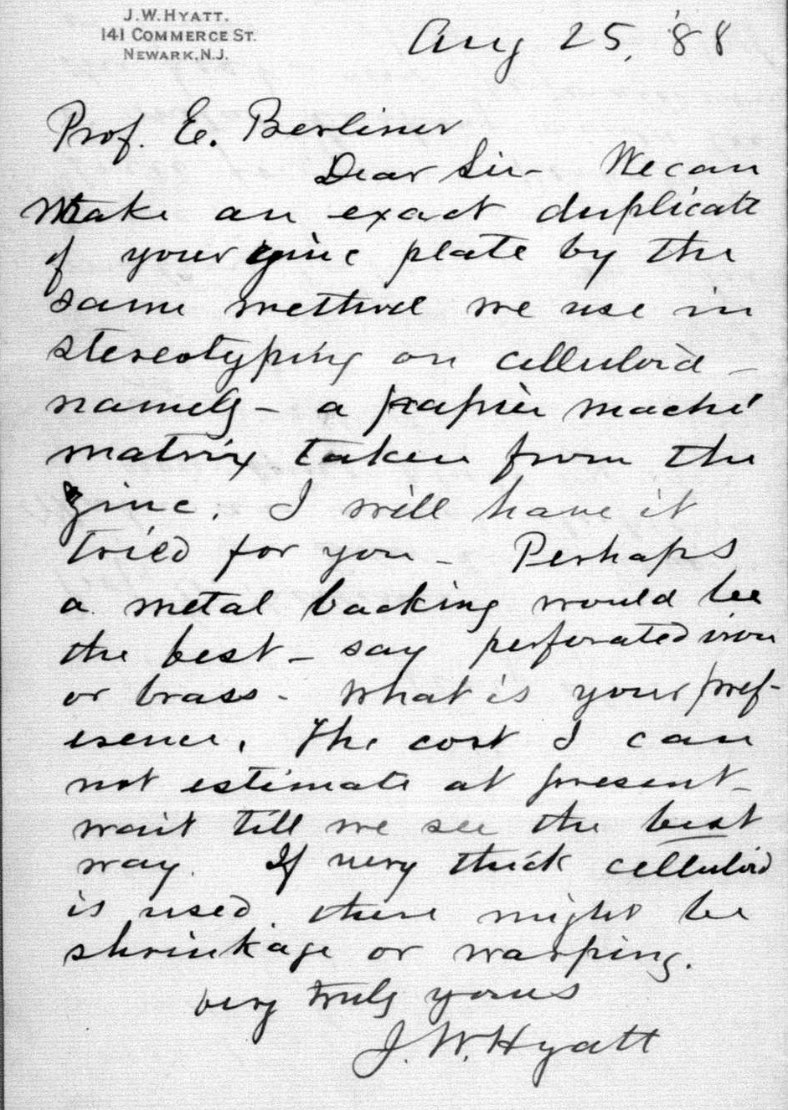 J.W. HYATT.
141 COMMERCE ST.
NEWARK, N.J.
Aug 25, '88
Prof. E. Berliner
Dear Sir - We can
make an exact duplicate
of your zinc plate by the
same method we use in
stereotyping on celluloid -
namely - a papier maché
matrix taken from the
zinc. I will have it
tried for you - Perhaps
a metal backing would be
the best - say perforated iron
or brass - What is your pref-
erence. The cost I can
not estimate at present -
wait till we see the best
way. If very thick celluloid
is used, there might be
shrinkage or warping.
Very truly yours
J.W. Hyatt